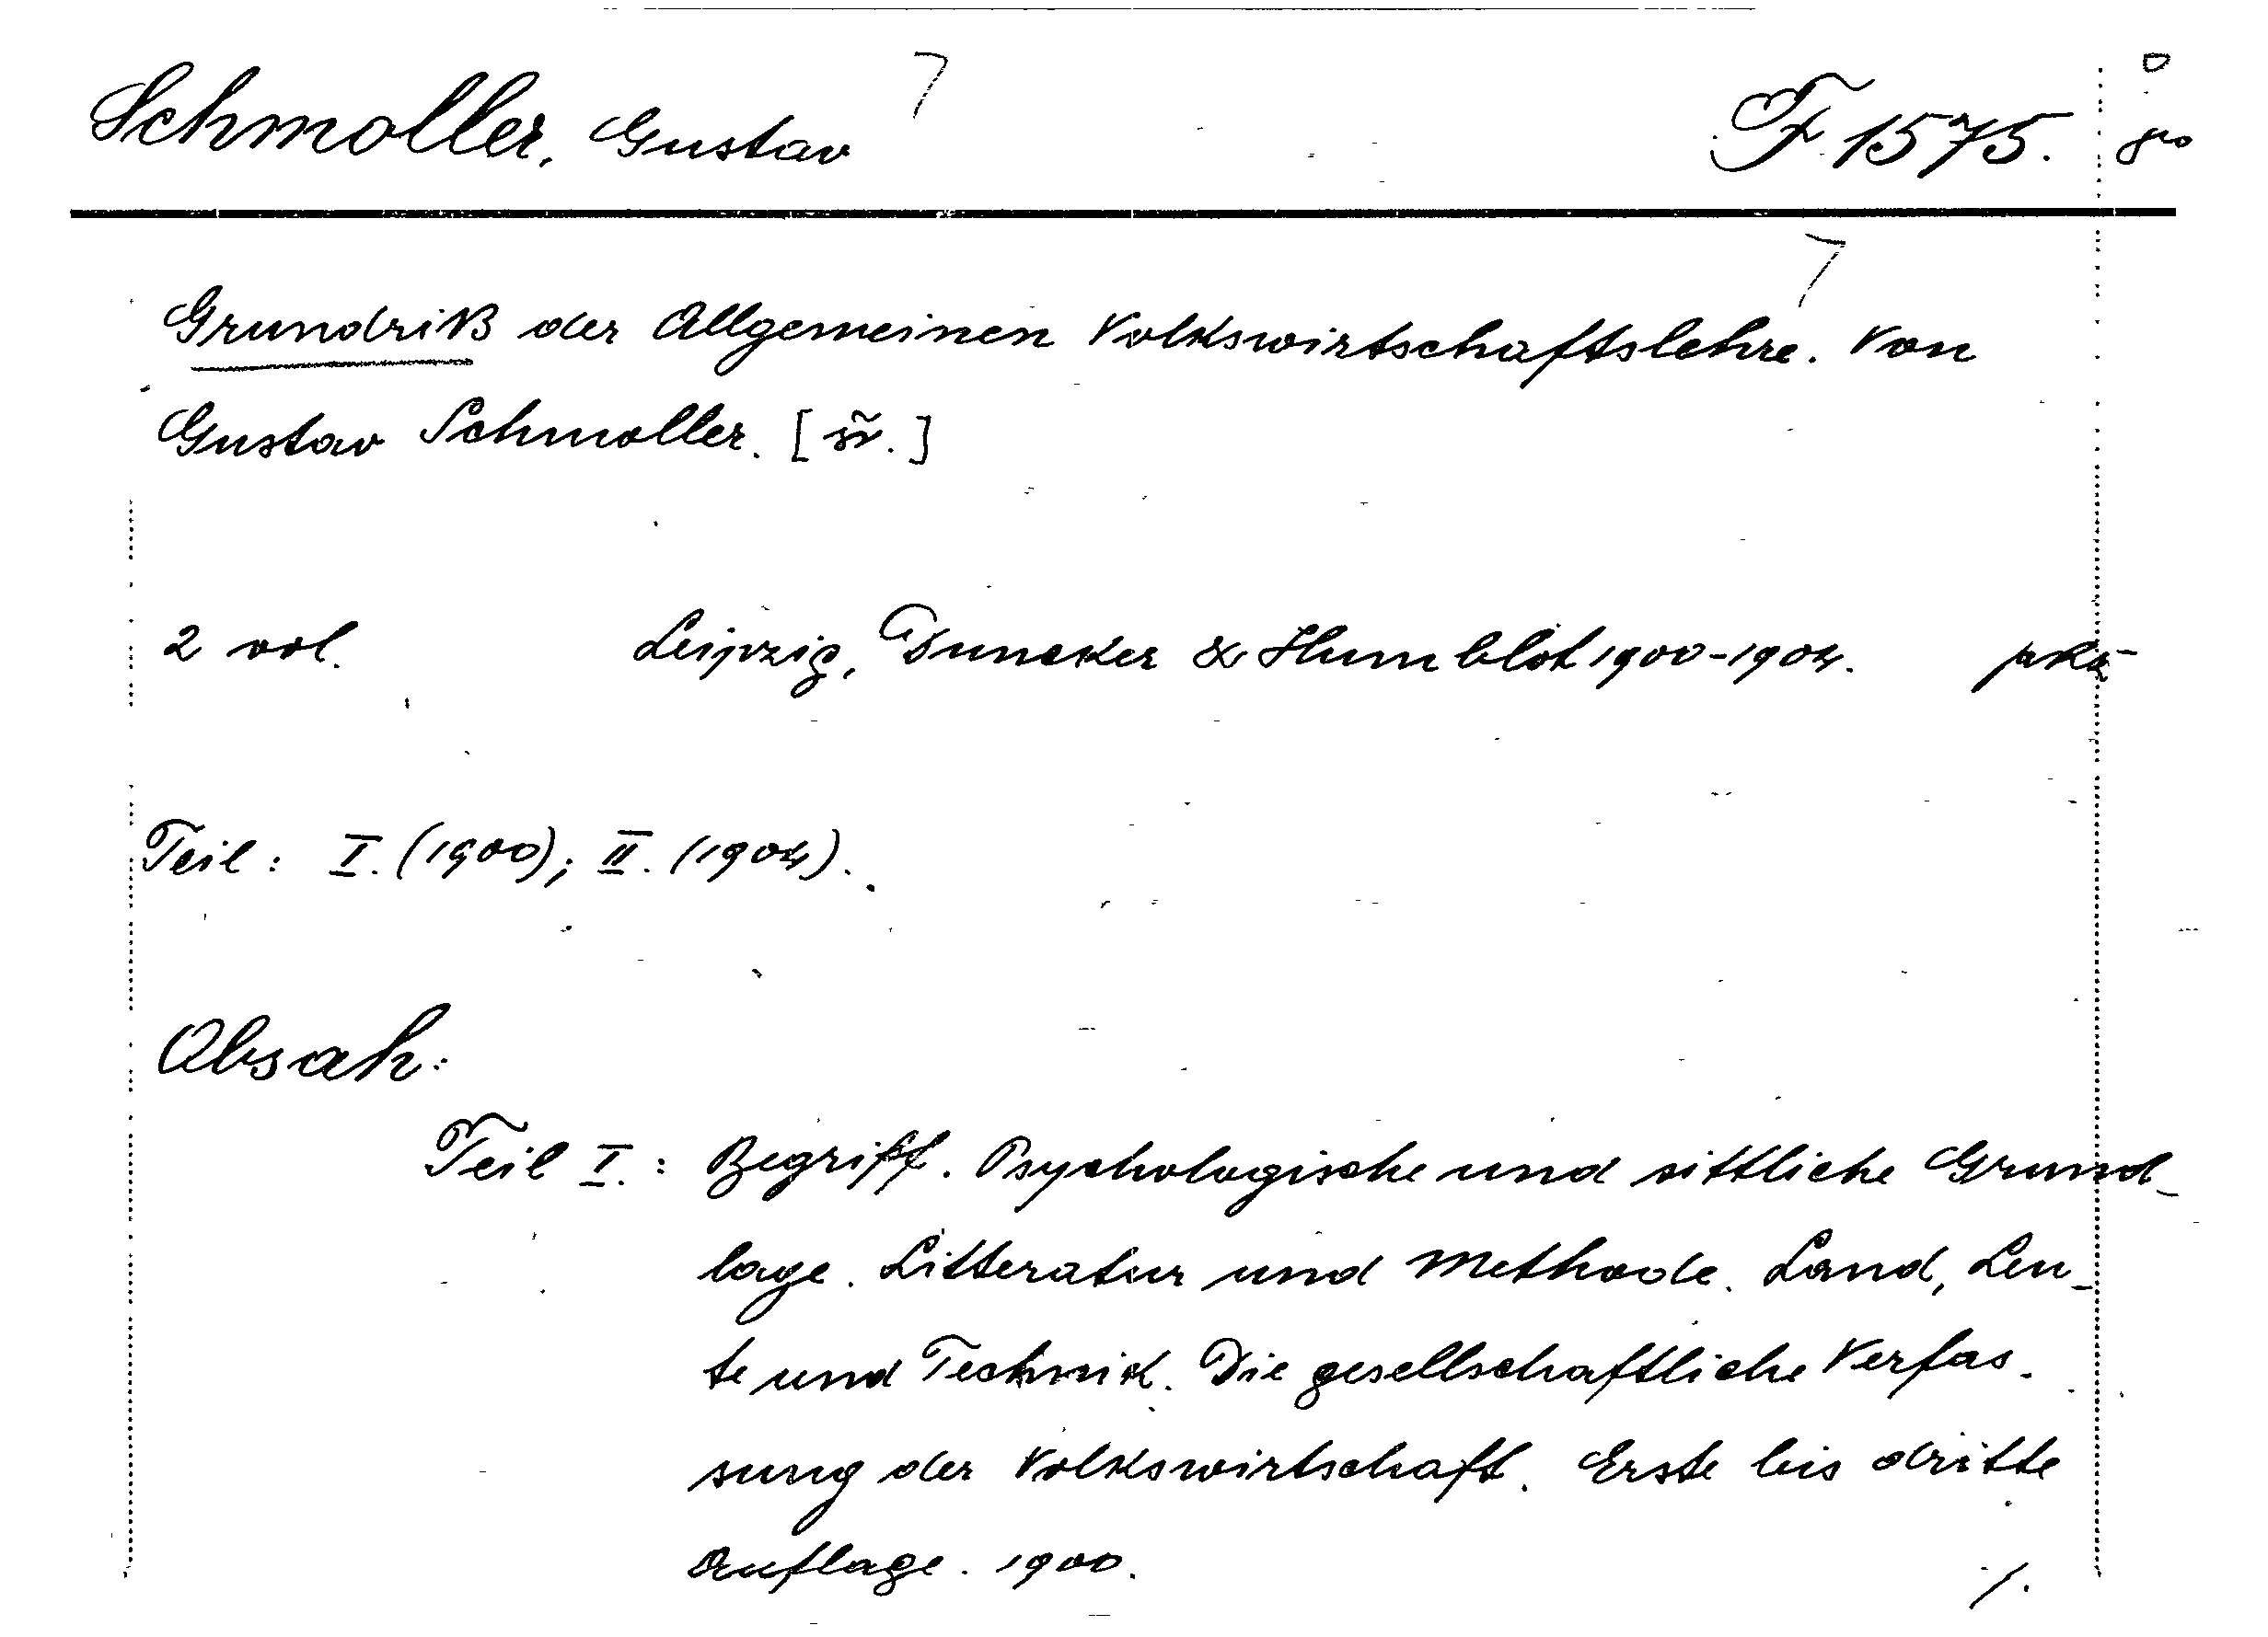 Schmoller, Gustav F 1575. 8vo
Grundriß der Allgemeinen Volkswirtschaftslehre. Von
Gustav Schmoller.
2 vol. Leipzig, Duncker & Humblot 1900-1904.
Teil: I. (1900); II. (1904).
Obsah:
Teil I.: Begriff. Psychologische und sittliche Grund-
lage. Litteratur und Methode. Land, Leu-
te und Technik. Die gesellschaftliche Verfas-
sung der Volkswirtschaft. Erste bis dritte
Auflage. 1900. ./.